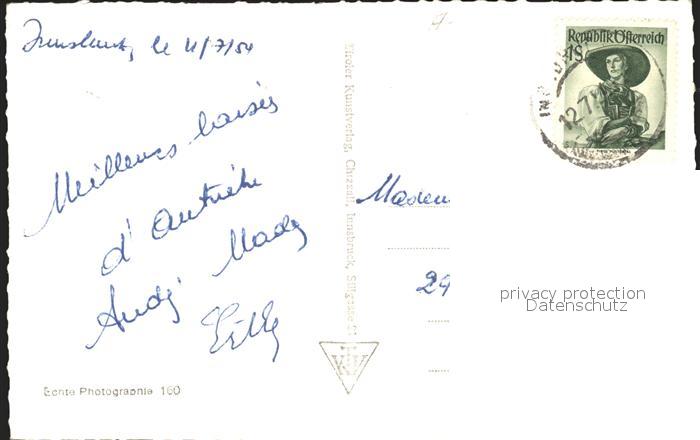 Innsbruck, le 11/7/54
Meilleurs baisers
d'Autriche
Andy Mady
Lilly
Echte Photographie 160
Tiroler Kunstverlag, Chizzali, Innsbruck, Sillgasse 21
TKV
Republik Österreich
1S
12.7
Madem
29
privacy protection
Datenschutz